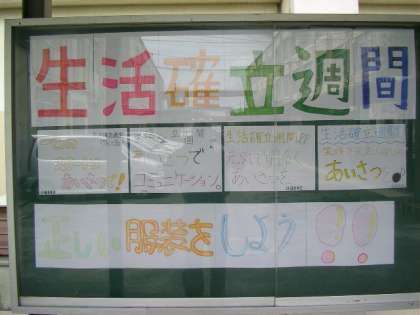 生活確立週間
あいさつで!
あいさつで
コミュニケーション。
生活確立週間
あいさつを
生活確立週間
あいさつ
正しい服装をしよう!!